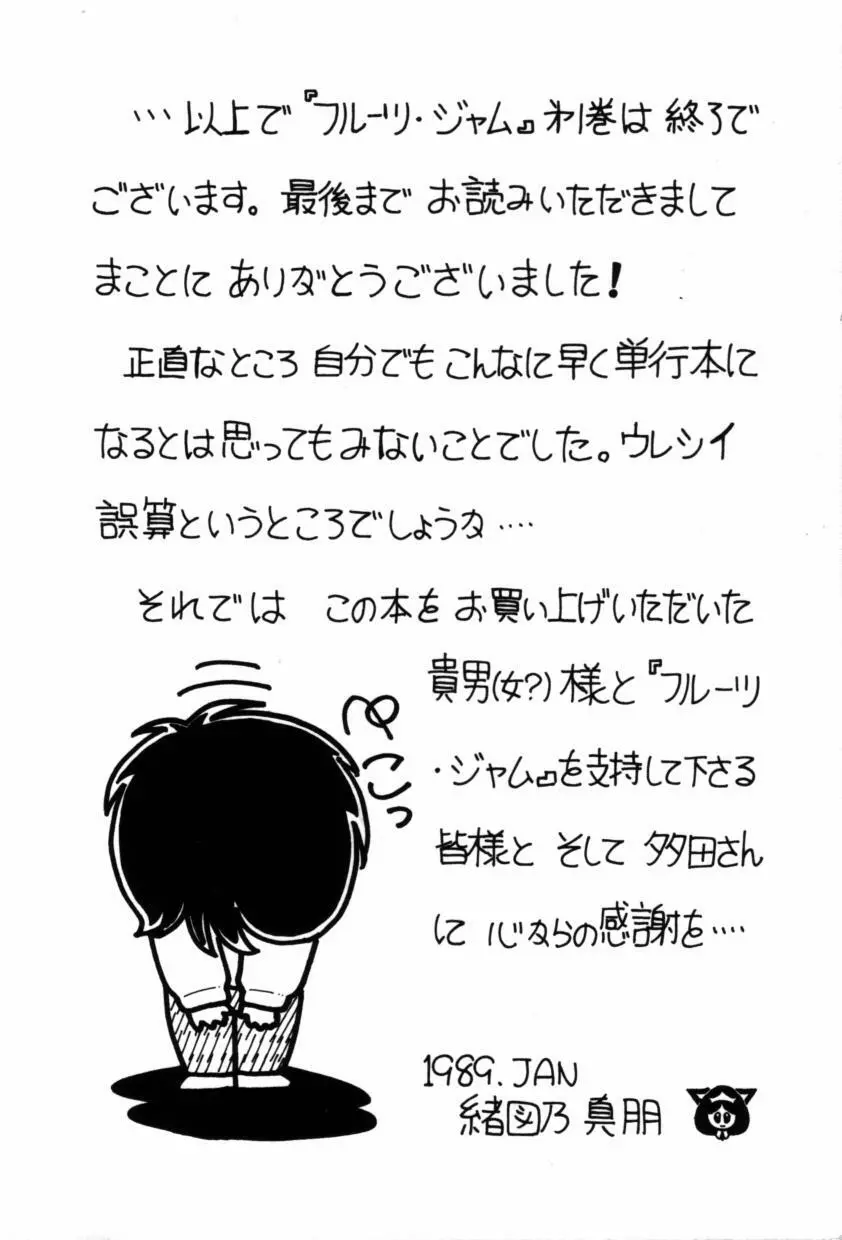 …以上で『フルーツ・ジャム』㐧1巻は 終了で
ございます。最後まで お読みいただきまして
まことに ありがとうございました!
正直なところ 自分でも こんなに早く単行本に
なるとは思ってもみないことでした。ウレシイ
誤算というところでしょうな‥‥
それでは この本を お買い上げいただいた
貴男(女?)様と『フルーツ
・ジャム』を支持して下さる
皆様と そして 多田さん
に 心からの感謝を‥‥
ぺこっ
1989.JAN
緒図乃 真朋